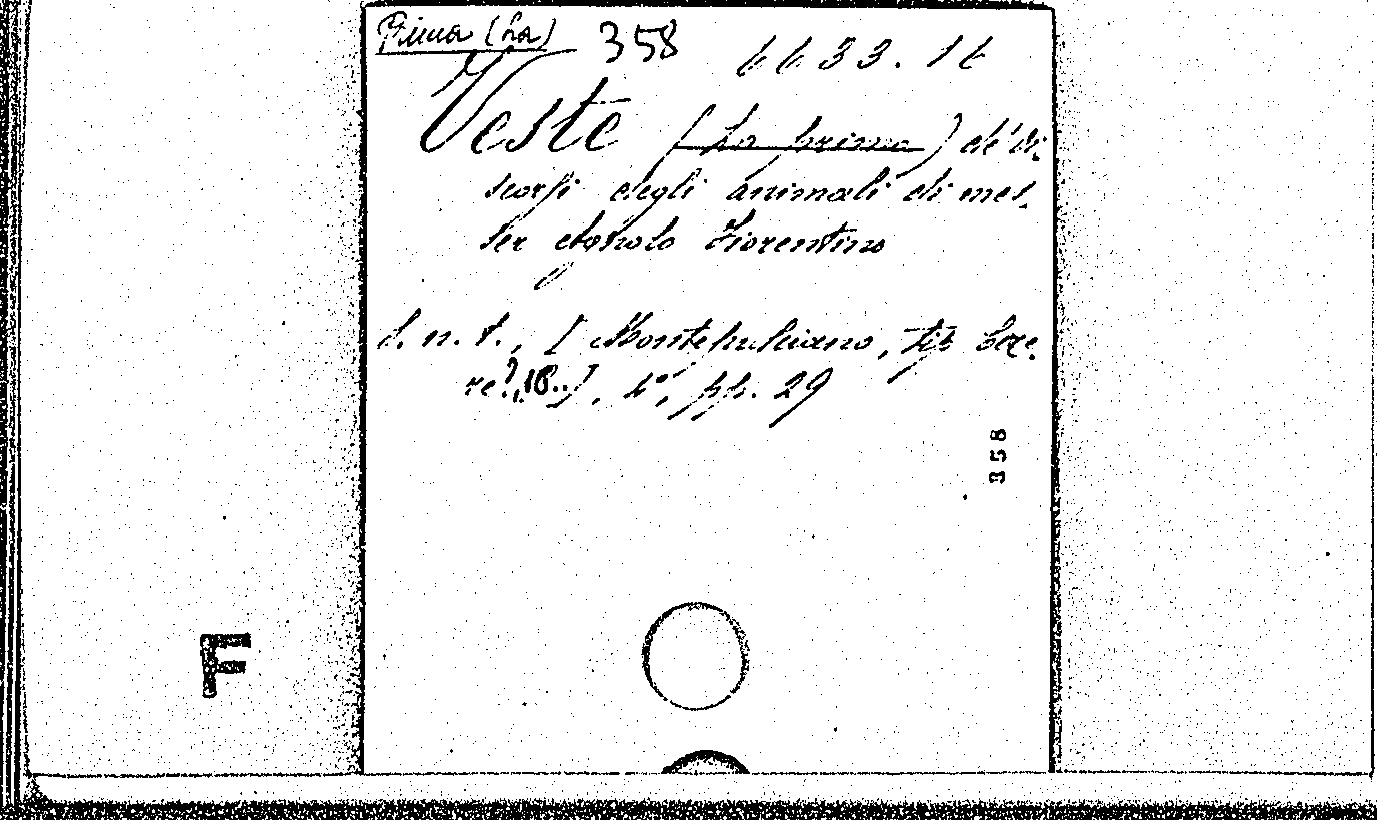 Prima (La) 358 6633.16
Veste (La prima) de' di-
scorsi degli animali di mes-
ser Agnolo Fiorentino
S. n. t., [Montepulciano, tip.
re?, 18..], 4°, pp. 29
358
F